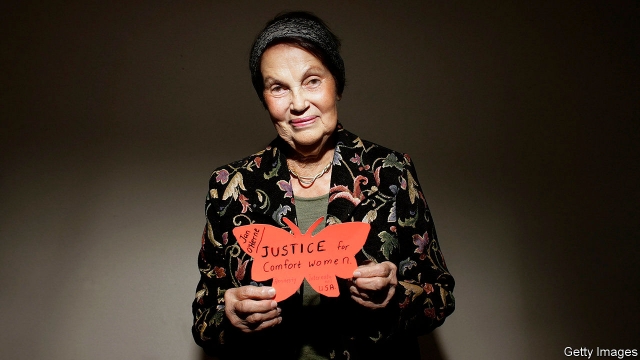 Jan
O'Herne
JUSTICE for
Comfort women.
USA
Getty Images